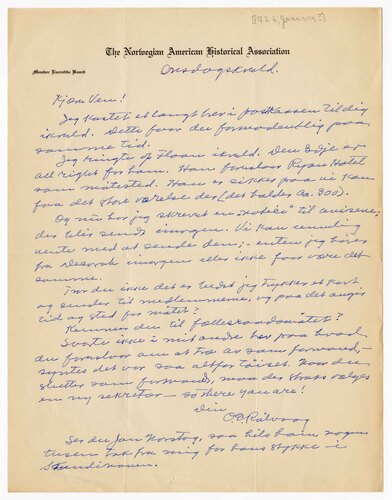 [1926, January ?]
The Norwegian American Historical Association
Member Executive Board
Onsdagskveld.
Kjære Ven!
Jeg kastet et langt brev i postkassen til dig
ikveld. Dette faar du formodentlig paa
samme tid.
Jeg ringte op Hoan ikveld. Den 8dje er
all right for ham. Han foreslaar Ryan Hotel
som møtested. Han er sikker paa vi kan
faa det store værelset (det holder ca. 300).
Og nu har jeg skrevet en "notis" til avisene,
der blir sendt imorgen. Vi kan
vente med at sende dem; enten jeg hører
fra imorgen eller ikke faar være det
samme.
Tror du ikke det er bedst jeg trykker et kort
og sender til medlemmerne, og paa det angir
tid og sted for møtet?
Kommer du til fællesraadsmøtet?
Svarte ikke i mit andre brev paa hvad
du foreslaar om at træ av som formand,
syntes det var saa altfor taapet. Naar du
slutter som formand, maa der straks vælges
en ny sekretær — so there you are!
Din
O. E. Rølvaag
Ser du Jon Norstog, saa hils ham nogen
tusen tak fra mig for hans stykke i
Skandinaven.